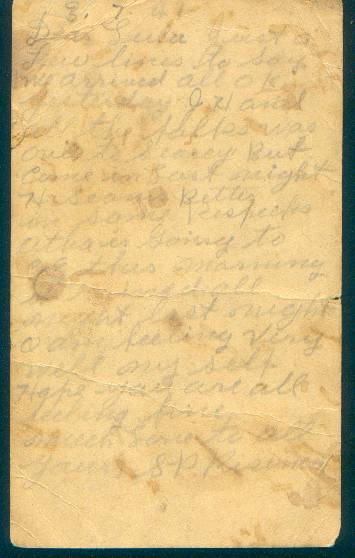 8. 7. 4
Dear Just a
Few lines to say
We arrived all O.K.
yesterday J H and
all the folks was
over to But
Came in Last night
H Seams Better
in Some Respects
Otha is Going to
this morning
all
night last night
I am feeling Very
well my Self
Hope you are all
feeling fine
much Love to all
Yours S. P.